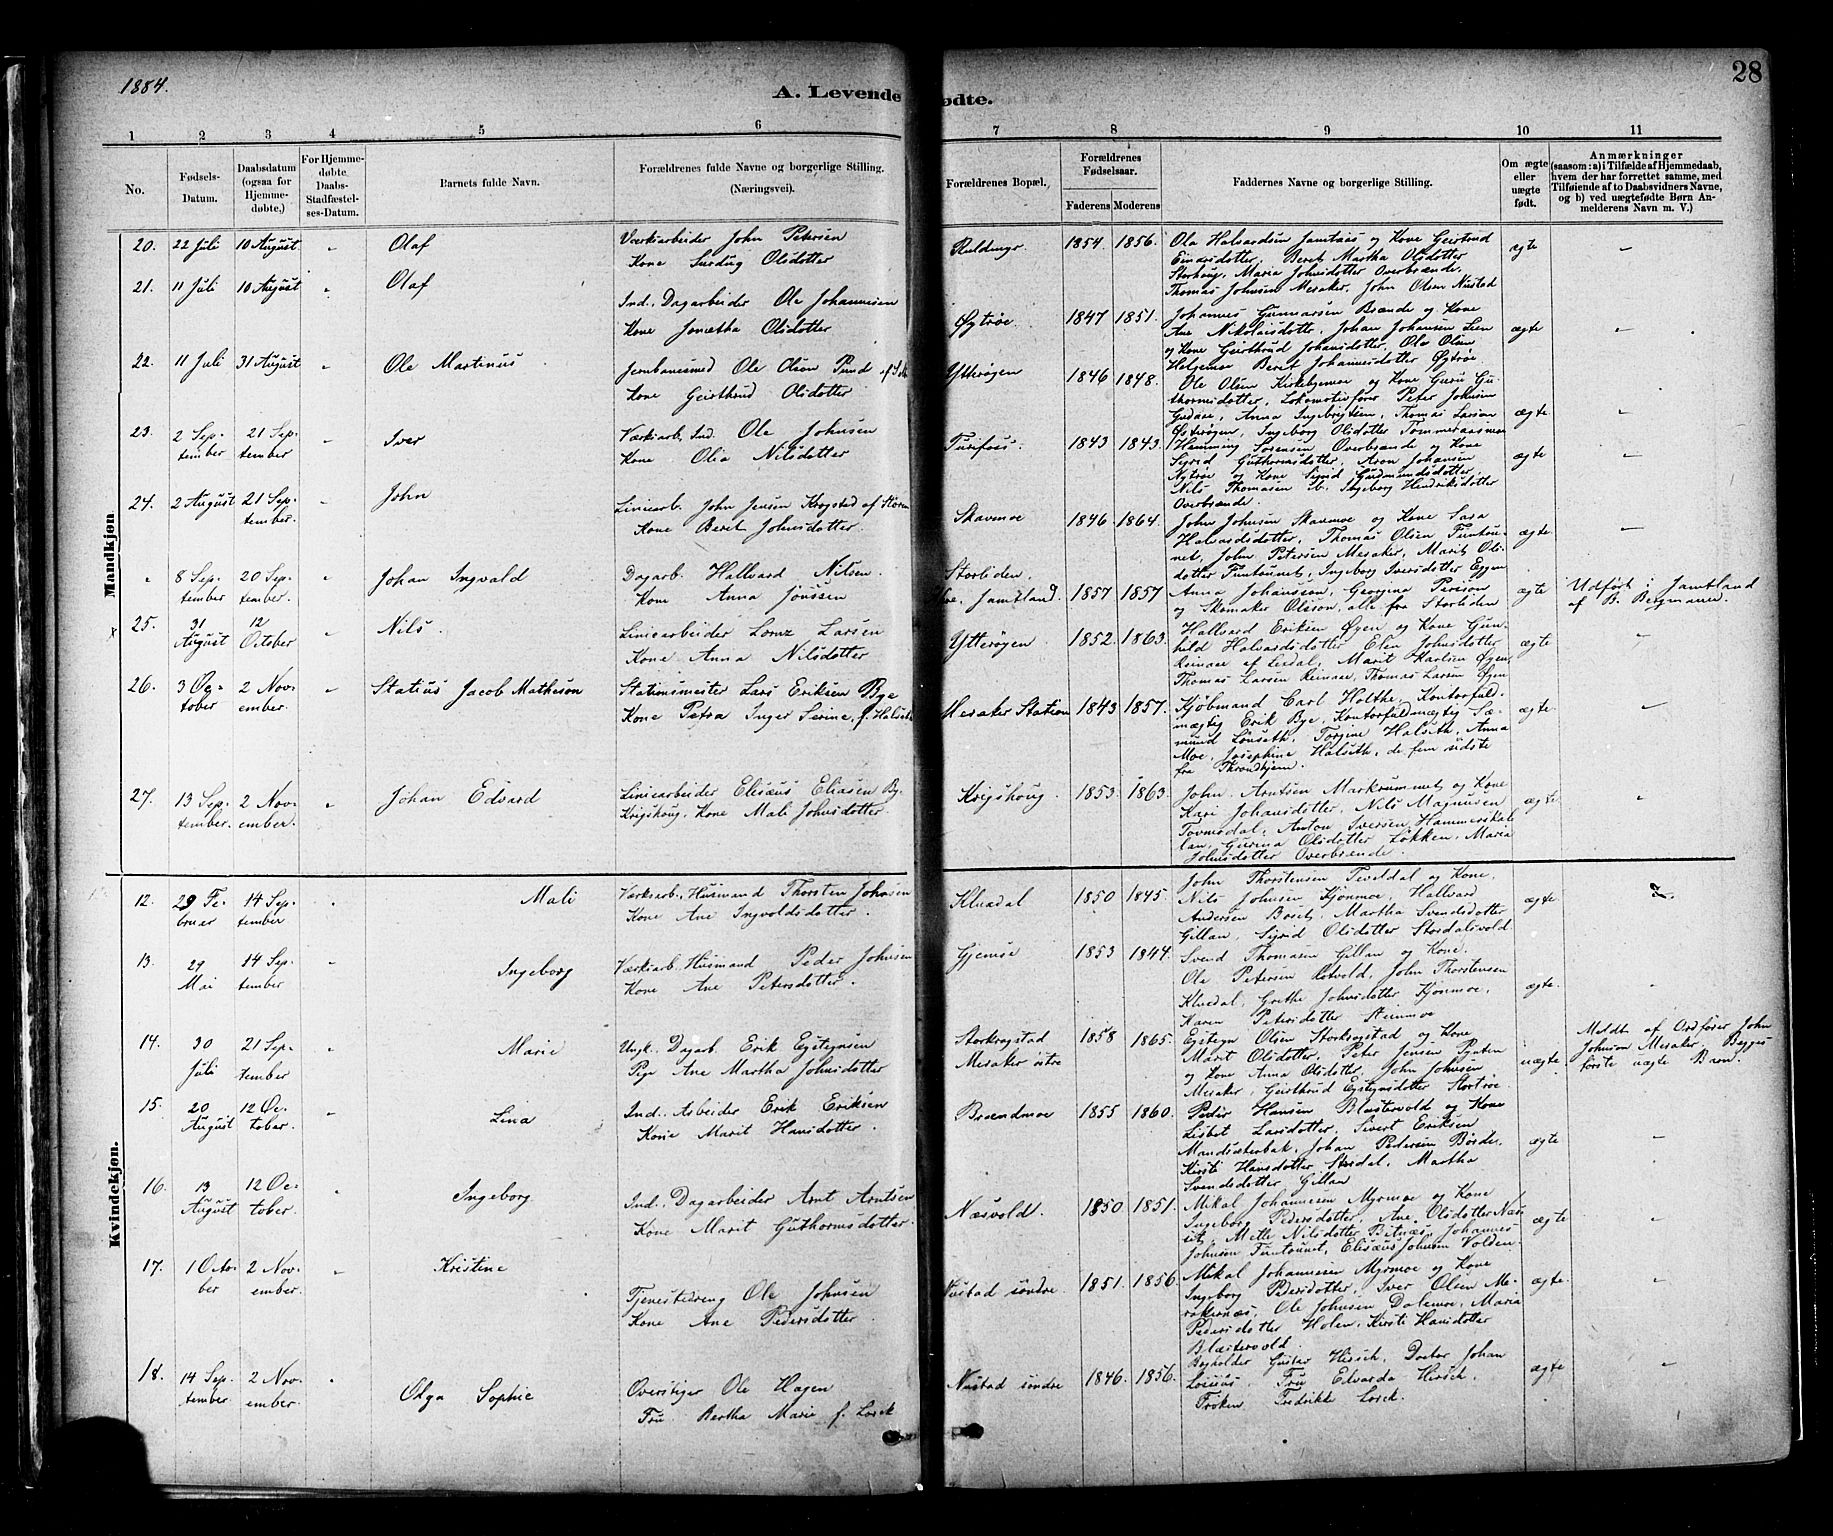 1884.
A. Levende fødte.
28
1 2 3 4 5 6 7 8 9 10 11
No. Fødsels-Datum. Daabsdatum (ogsaa for Hjemme-døbte,) For Hjemme-døbte Daabs-Stadfæstel-ses-Datum. Barnets fulde Navn. Forældrenes fulde Navne og borgerlige Stilling. (Næringsvei). Forældrenes Bopæl. Forældrenes Fødselsaar. Faderens Moderens Faddernes Navne og borgerlige Stilling. Om ægte eller uægte født. Anmærkninger (saasom: a) i Tilfælde af Hjemmedaab, hvem der har forrettet samme, med Tilføiende af to Daabsvidners Navne, og b) ved uægtefødte Børn An-melderens Navn m. V.)
Mandkjøn
20. 22 Juli 10 August " Olaf
Værksarbeider John Petersen
Kone Olisdotter
1854 1856.
Ola Halvardsen Jamtaas og Kone Geirtrud
Einarsdotter, Beret Martha Olsdotter
Storhaug, Maria Johnsdotter Overbrænde,
Thomas Johnsen Meraker, John Olsen Nustad
ægte "
21. 11 Juli 10 August " Olaf
Ind. Dagarbeider Ole Johannesen
Kone Jonetha Olsdotter
Øytrøe. 1847 1851.
Johannes Gunnarsen Brænde og Kone
Ane Nikolaisdotter, Johan Johansen Lien
og Kone Geirthrud Johansdotter, Ole Olsen
Helgemoe Beret Johannesdotter Øytrøe.
ægte "
22. 11 Juli 31 August " Ole Martinus
Jernbanesmed Ole Olsen Fund
Kone Geirthrud Olsdotter
Ytterøgen 1846 1848.
Ole Olsen Kirkebymoe og Kone Guru Gu-
thormsdotter, Lokomotivfører Peter Johnsen
Gudaae, Anna Ingebrigtsen, Thomas Larsen
Østerøgen, Ingeborg Olsdotter Tommeraasmoe
ægte "
23. 2 Sep-tember 21 Sep-tember " Iver
Værksarb. Ind. Ole Johnsen
Kone Olia Nilsdotter
Turifoss. 1843 1843.
Hemming Sørensen Overbrænde og Kone
Sigrid Guthormsdotter, Aron Johansen
Nytrøe og Kone Sigrid Gudmundsdotter,
Nils Thomasen ib. Ingeborg Hendriksdotter
Overbrænde.
ægte "
24. 2 August 21 Sep-tember. " John
Liniearb. John Jensen Krogstad af Støren
Kone Beret Johnsdotter.
Skavmoe 1846 1864.
John Johnsen Skavmoe og Kone Sara
Halvardsdotter, Thomas Olsen Funtau-
net, John Petersen Meraker, Marit Ols-
dotter Funtaunet, Ingeborg Iversdotter Eggen
ægte "
" 8 Sep-tember 20 Sep-tember. " Johan Ingvald
Dagarb. Hallvard Nilsen.
Kone Anna Jönssen
Storliden. Jamtland. 1857 1857
Anna Johansson, Georgina Persson
og Skomaker Olsson, alle fra Storliden
ægte Udført i Jamtland
af B. Bergmann.
x 25. 31 August 12 October " Nils.
Liniearbeider Lornz Larsen
Kone Anna Nilsdotter
Ytterøgen 1852. 1863.
Hallvard Eriksen Øgen og Kone Gun-
hild Halvardsdotter, Elen Johnsdotter
Reinaae af Lexdal, Marit Karlsen Øgen,
Thomas Larsen Reinaae, Thomas Larsen Øgen
ægte "
26. 3 Oc-tober 2 Nov-ember. " Statius Jacob Matheson
Stationsmester Lars Eriksen Bye
Kone Petra Inger Serine, f. Halseth
Meraker Station 1843 1857.
Kjøbmand Carl Holthe, Kontorfuld-
mægtig Erik Bye, Kontorfuldmægtig Sæ-
mund Lønseth, Torgine Halseth, Anna
Moe, Josephine Halseth, de fem sidste
fra Throndhjem.
ægte. "
27. 13 Sep-tember. 2 Nov-ember. " Johan Edvard
Liniearbeider Elisæus Eliasen By.
Krigshoug, Kone Mali Johnsdotter
Krigshoug. 1853. 1863.
John Arntsen Markrummet og Kone
Kari Johansdotter, Nils Magnusen
Tovmodal, Anton Iversen, Hammerskal-
lan, Gurina Olsdotter Løkken, Maria
Johnsdotter Overbrænde.
ægte "
Kvindekjøn.
12. 29 Fe-bruar 14 Sep-tember " Mali
Værksarb. Husmand Thorsten Johnsen
Kone Ane Ingvoldsdotter.
Kluxdal 1850 1845.
John Thorstensen Teveldal og Kone,
Nils Johnsen Kjønmoe, Hallvard
Andersen Boset, Martha Svendsdotter
Gillan, Sigrid Olsdotter Stordalsvold
ægte
13. 29 Mai 14 Sep-tember " Ingeborg
Værksarb. Husmand Peder Johnsen
Kone Ane Petersdotter.
Gjemse 1853 1844.
Svend Thomasen Gillan og Kone.
Ole Petersen Rotvold, John Thorstensen
Kluxdal, Grethe Johnsdotter Kjønmoe,
Karen Petersdotter Steinmoe
ægte. "
14. 30 Juli 21 Sep-tember " Marie
Ungk. Dagarb. Erik Eystegnsen
Pige Ane Martha Johnsdotter
Storkrogstad
Meraker østre 1858 1865.
Eystegn Olsen Storkrogstad og Kone
Marit Olsdotter, Peter Jensen Pynten
og Kone Anna Olsdotter, John Johnsen
Meraker, Geirthrud Eystegnsdotter Stortrøe
uægte. Meldt af Ordfører John
Johnson Meraker, Begges
første uægte Barn.
15. 20 August 12 Oc-tober " Lina
Ind. Arbeider Erik Eriksen
Kone Marit Hansdotter.
Brændmoe 1855 1860.
Peder Hansen Blæstervold og Kone
Lisbet Larsdotter, Sivert Eriksen
Mandsæterbak, Johan Pedersen Børdes,
Kirsti Hansdotter Stordal, Martha
Svendsdotter Gillan
ægte "
16. 13 August 12 Oc-tober. " Ingeborg
Ind. Dagarbeider Arnt Arntsen
Kone Marit Guthormsdotter.
Næsvold. 1850 1851.
Mikal Johannesen Myrmoe og Kone
Ingeborg Pedersdotter, Ane Olsdotter Næs-
set, Mette Nilsdotter Bitnæs, Johannes
Johnsen Funtaunet, Elisæus Johnsen Volden.
ægte "
17. 1 Octo-ber 2 Nov-ember. " Kristine
Tjenestedreng Ole Johnsen
Kone Ane Pedersdotter.
Nustad søndre. 1851. 1856.
Mikal Johannesen Myrmoe og Kone
Ingeborg Pedersdotter, Iver Olsen Me-
rakernæs, Ole Johnsen Dalemoe, Maria
Pedersdotter Holen, Kirsti Hansdotter
Blæstervold
ægte. "
18. 14 Sep-tember 2 Nov-ember. " Olga Sophie
Overstiger Ole Hagen
Fru Bertha Marie f. Lorck
Nustad søndre 1846 1856.
Bogholder Gustav Hirsch, Doctor Johan
Fru Edvarda Hirsch,
Frøken Fredrikke Lorck.
ægte "